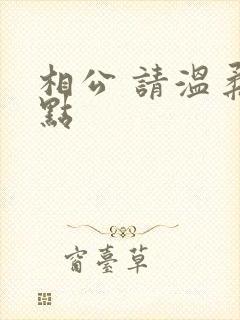 相公 請溫柔
點
窗臺草